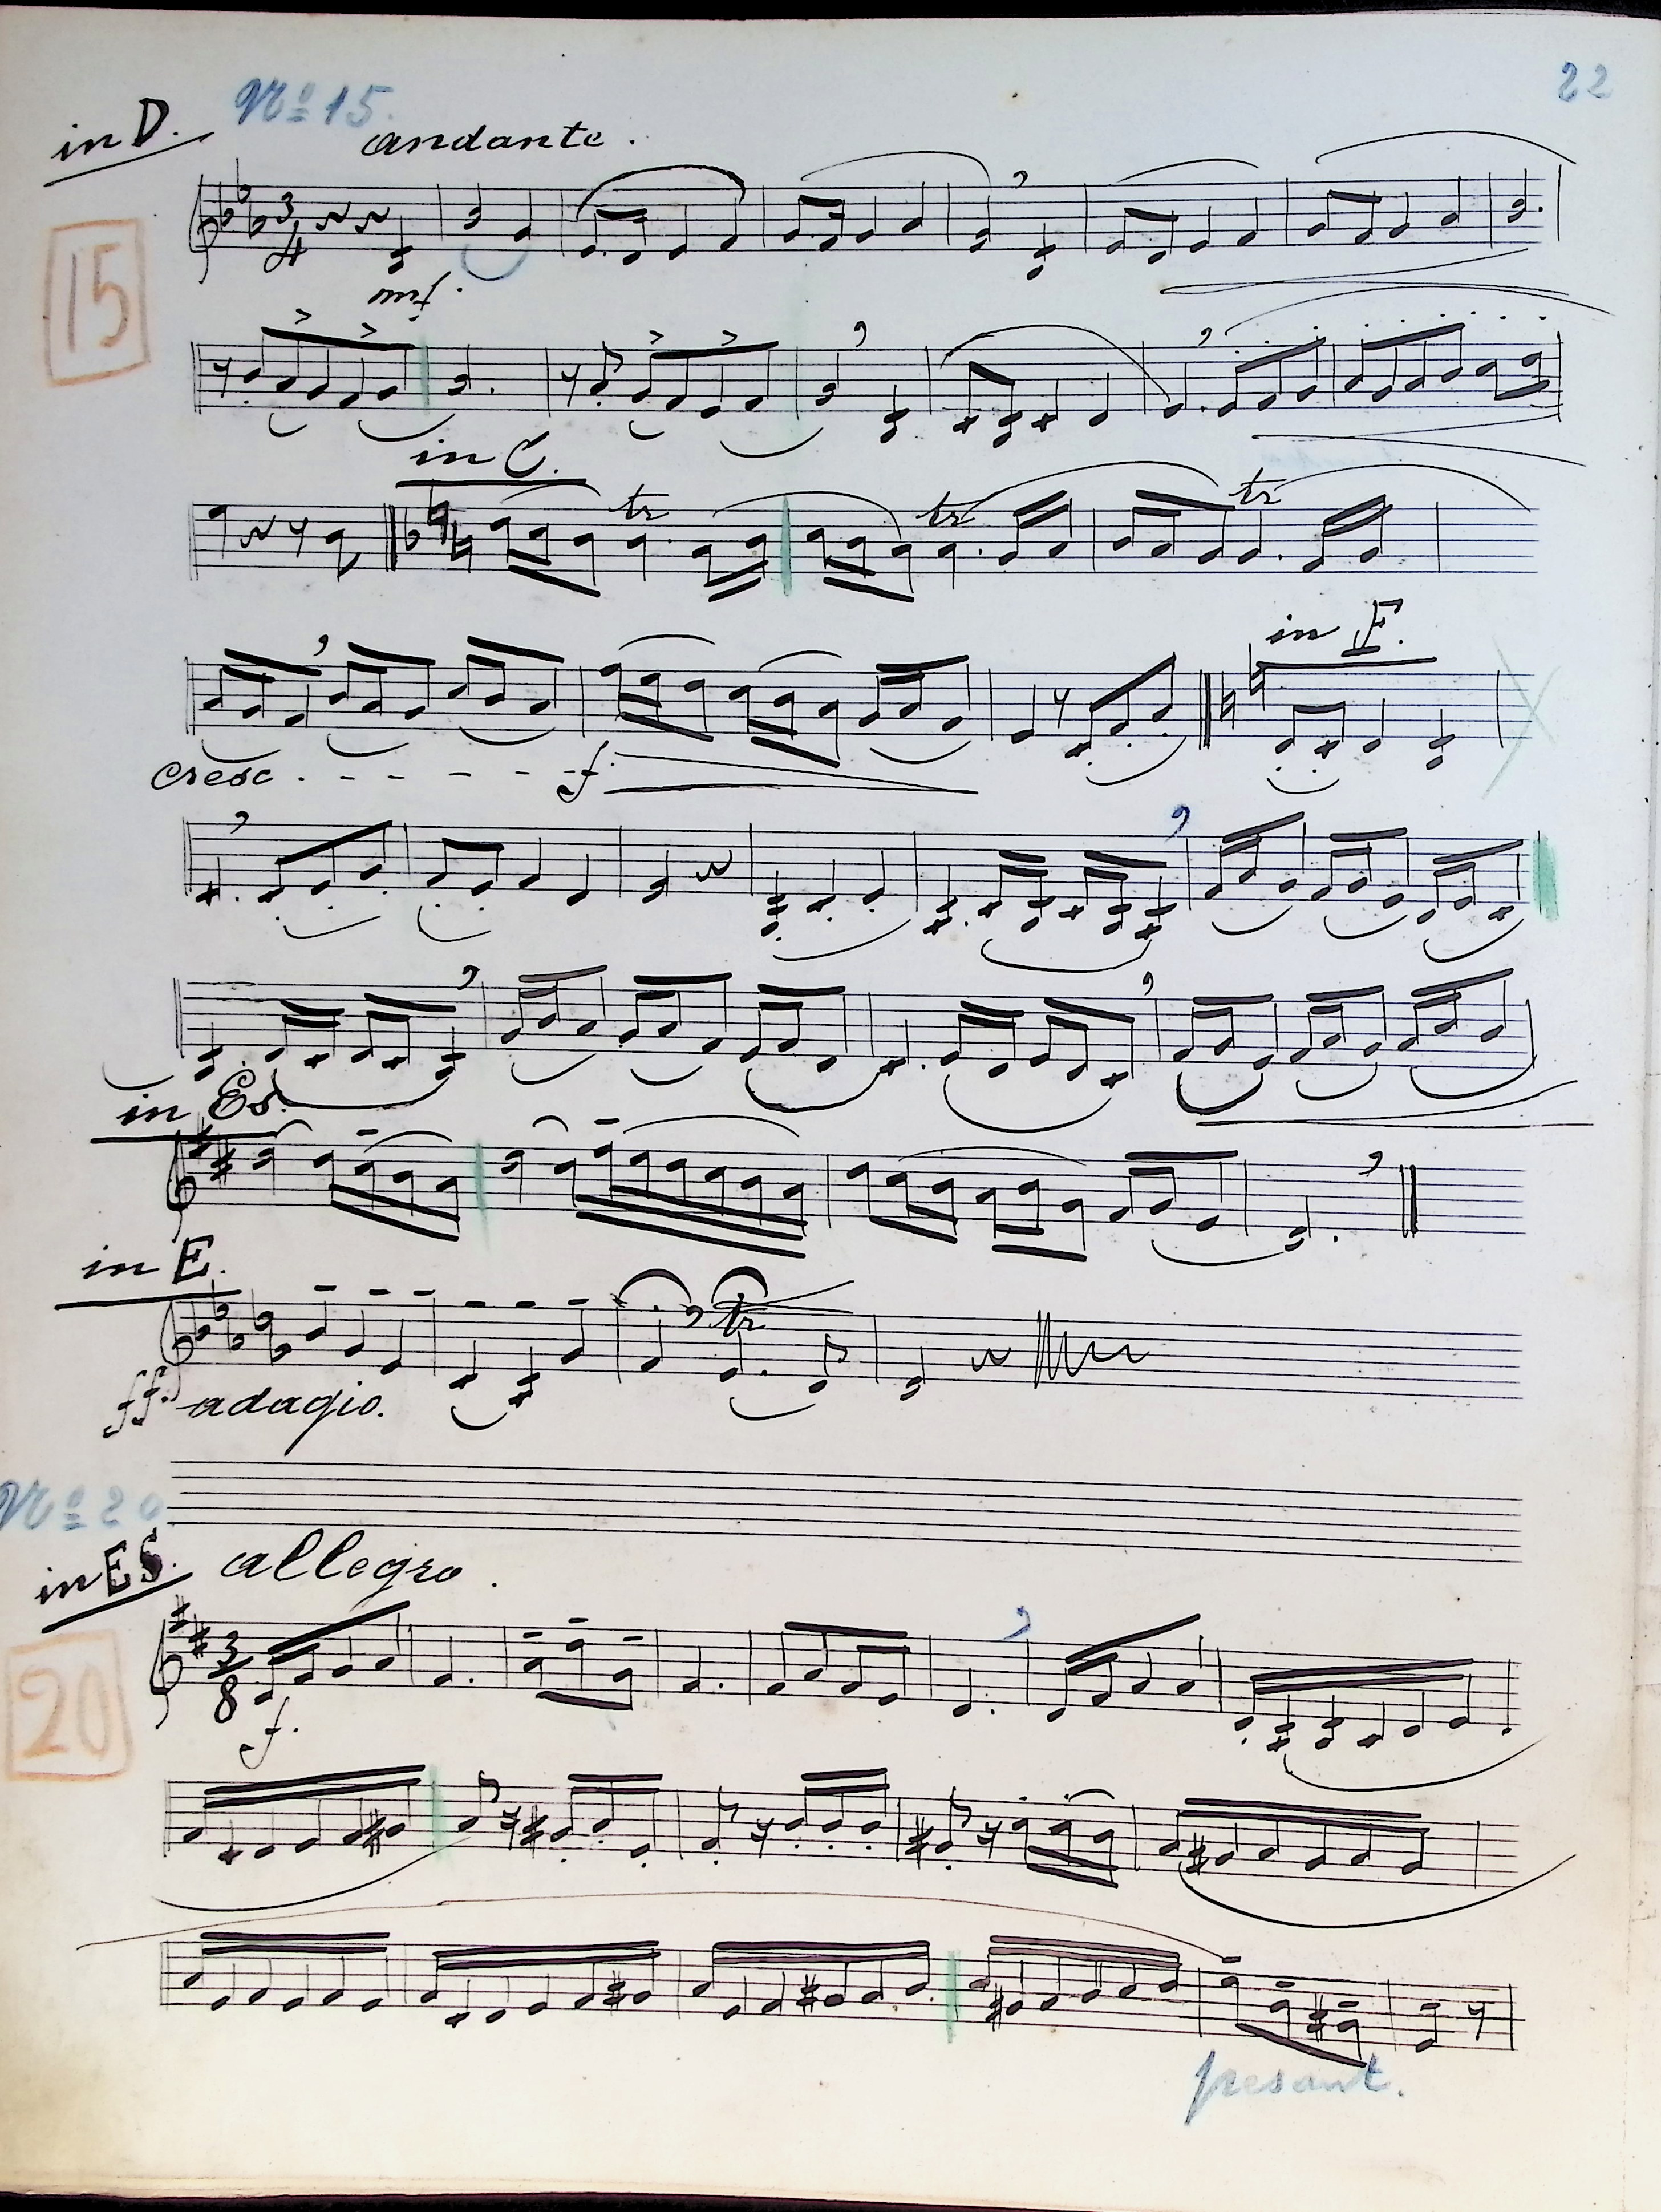 22
in D. No 15.
andante.
3/4
15
mf.
in C.
tr tr tr
in F.
cresc. - - - - - - f.
in Es.
in E.
tr
ff. adagio.
No 20
in ES. allegro.
3/8
20
f.
pesant.